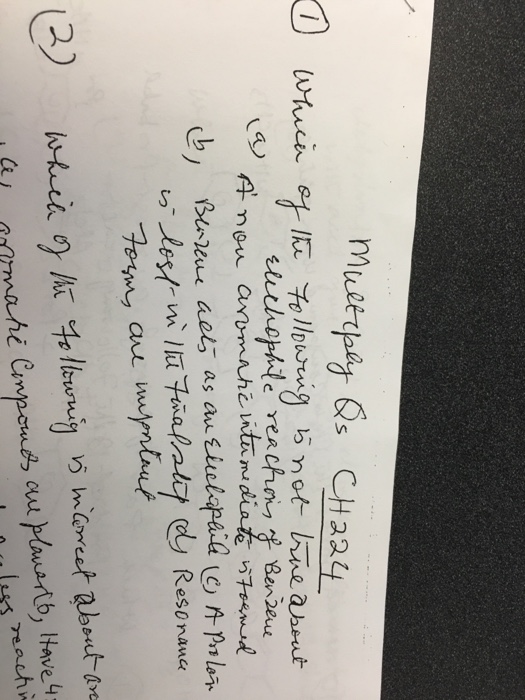 Multiply Qs CH224
① Which of the following is not true about
electrophilic reactions of Benzene
(a) A non aromatic intermediate is formed
(b) Benzene acts as an Electrophile (c) A Proton
is lost in the final step (d) Resonance
forms are important
(2) Which of the following is incorrect about
(a) aromatic Compounds are planar b, Have 4
less